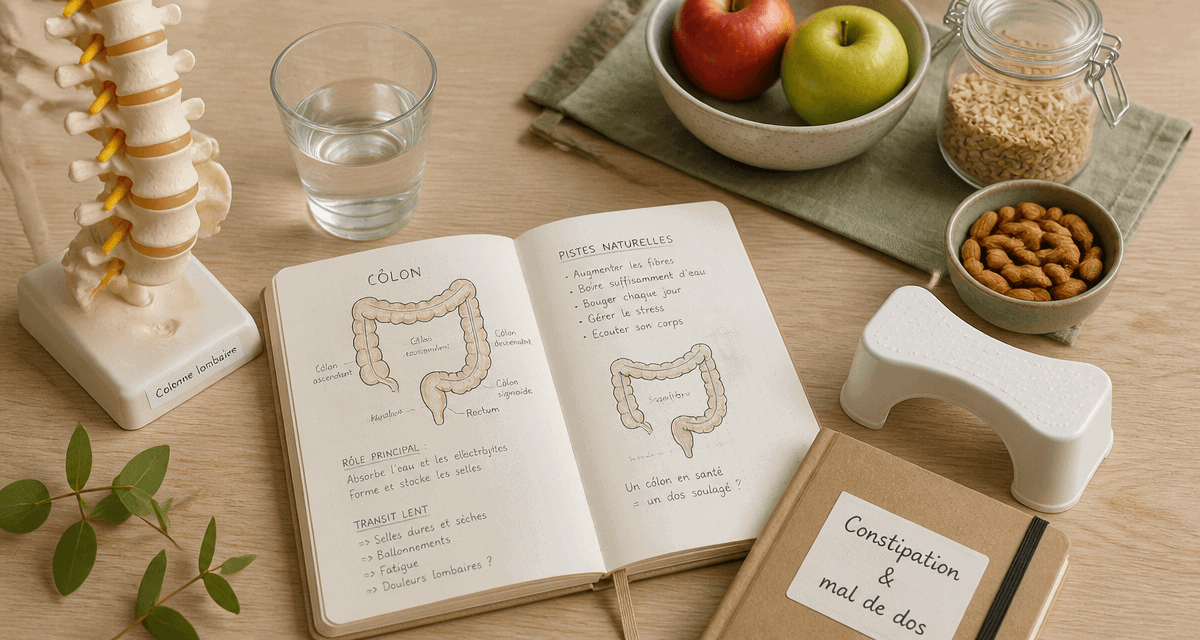 Colonne lombaire
CÔLON
Côlon
Côlon
ascendant
Côlon
descendant
Côlon
sigmoïde
Rectum
RÔLE PRINCIPAL :
Absorbe l'eau et les électrolytes
Forme et stocke les selles
TRANSIT LENT
=> Selles dures et sèches
=> Ballonnements
=> Fatigue
=> Douleurs lombaires ?
PISTES NATURELLES
• Augmenter les fibres
• Boire suffisamment d'eau
• Bouger chaque jour
• Gérer le stress
• Écouter son corps
Un côlon en santé
= un dos soulagé ?
Constipation
&
mal de dos